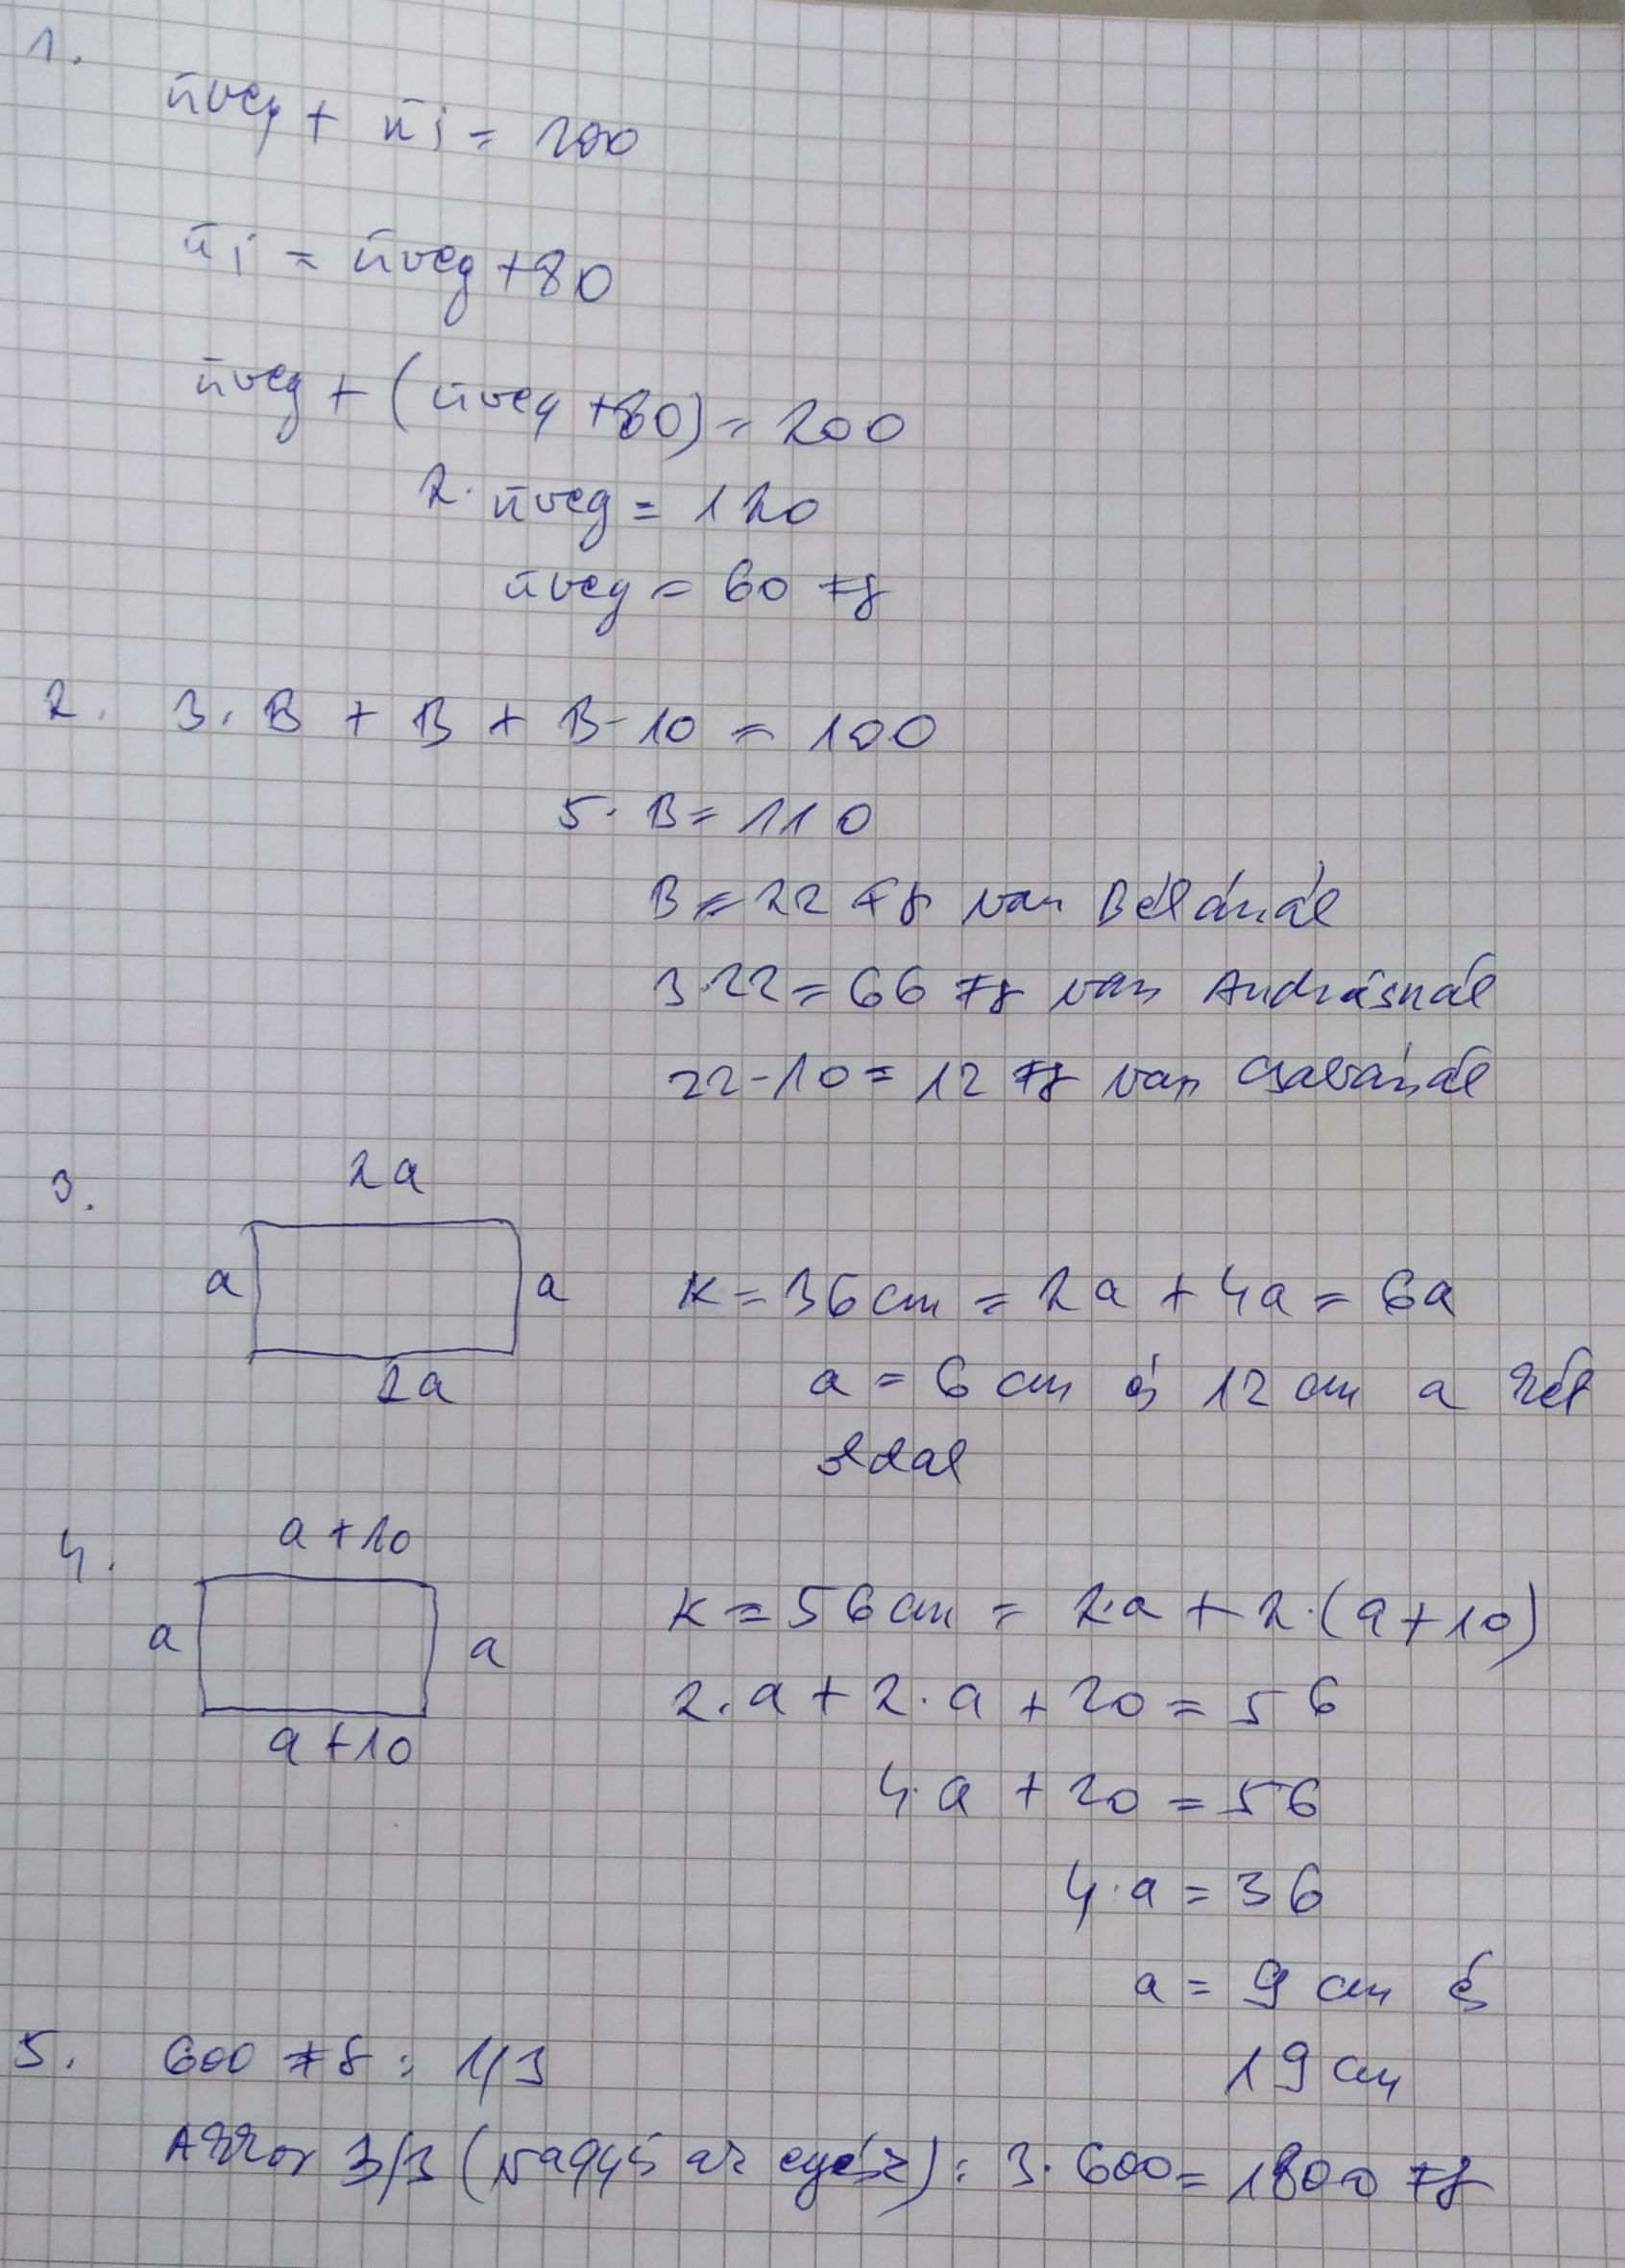 1.
üveg + üi = 200
üi = üveg + 80
üveg + (üveg + 80) = 200
2 · üveg = 120
üveg = 60 Ft
2. 3 · B + B + B - 10 = 100
5 · B = 110
B = 22 Ft van Bélánál
3 · 22 = 66 Ft van Andrásnál
22 - 10 = 12 Ft van Csabánál
3.
2a
a a
2a
K = 36 cm = 2a + 4a = 6a
a = 6 cm és 12 cm a két
oldal
4.
a + 10
a a
a + 10
K = 56 cm = 2·a + 2·(a + 10)
2 · a + 2 · a + 20 = 56
4 · a + 20 = 56
4 · a = 36
a = 9 cm és
19 cm
5. 600 Ft : 1/3
Akkor 3/3 (vagyis az egész) : 3 · 600 = 1800 Ft